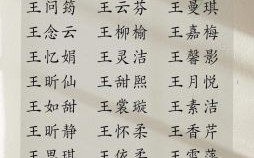 王问筠 王云芬 王曼琪
王念云 王柳榆 王嘉梅
王忆娟 王灵洁 王馨影
王昕仙 王甜熙 王月悦
王如甜 王裳璇 王素洁
王昕静 王怀柔 王香芹
王思琪 王依柔 王雪萍